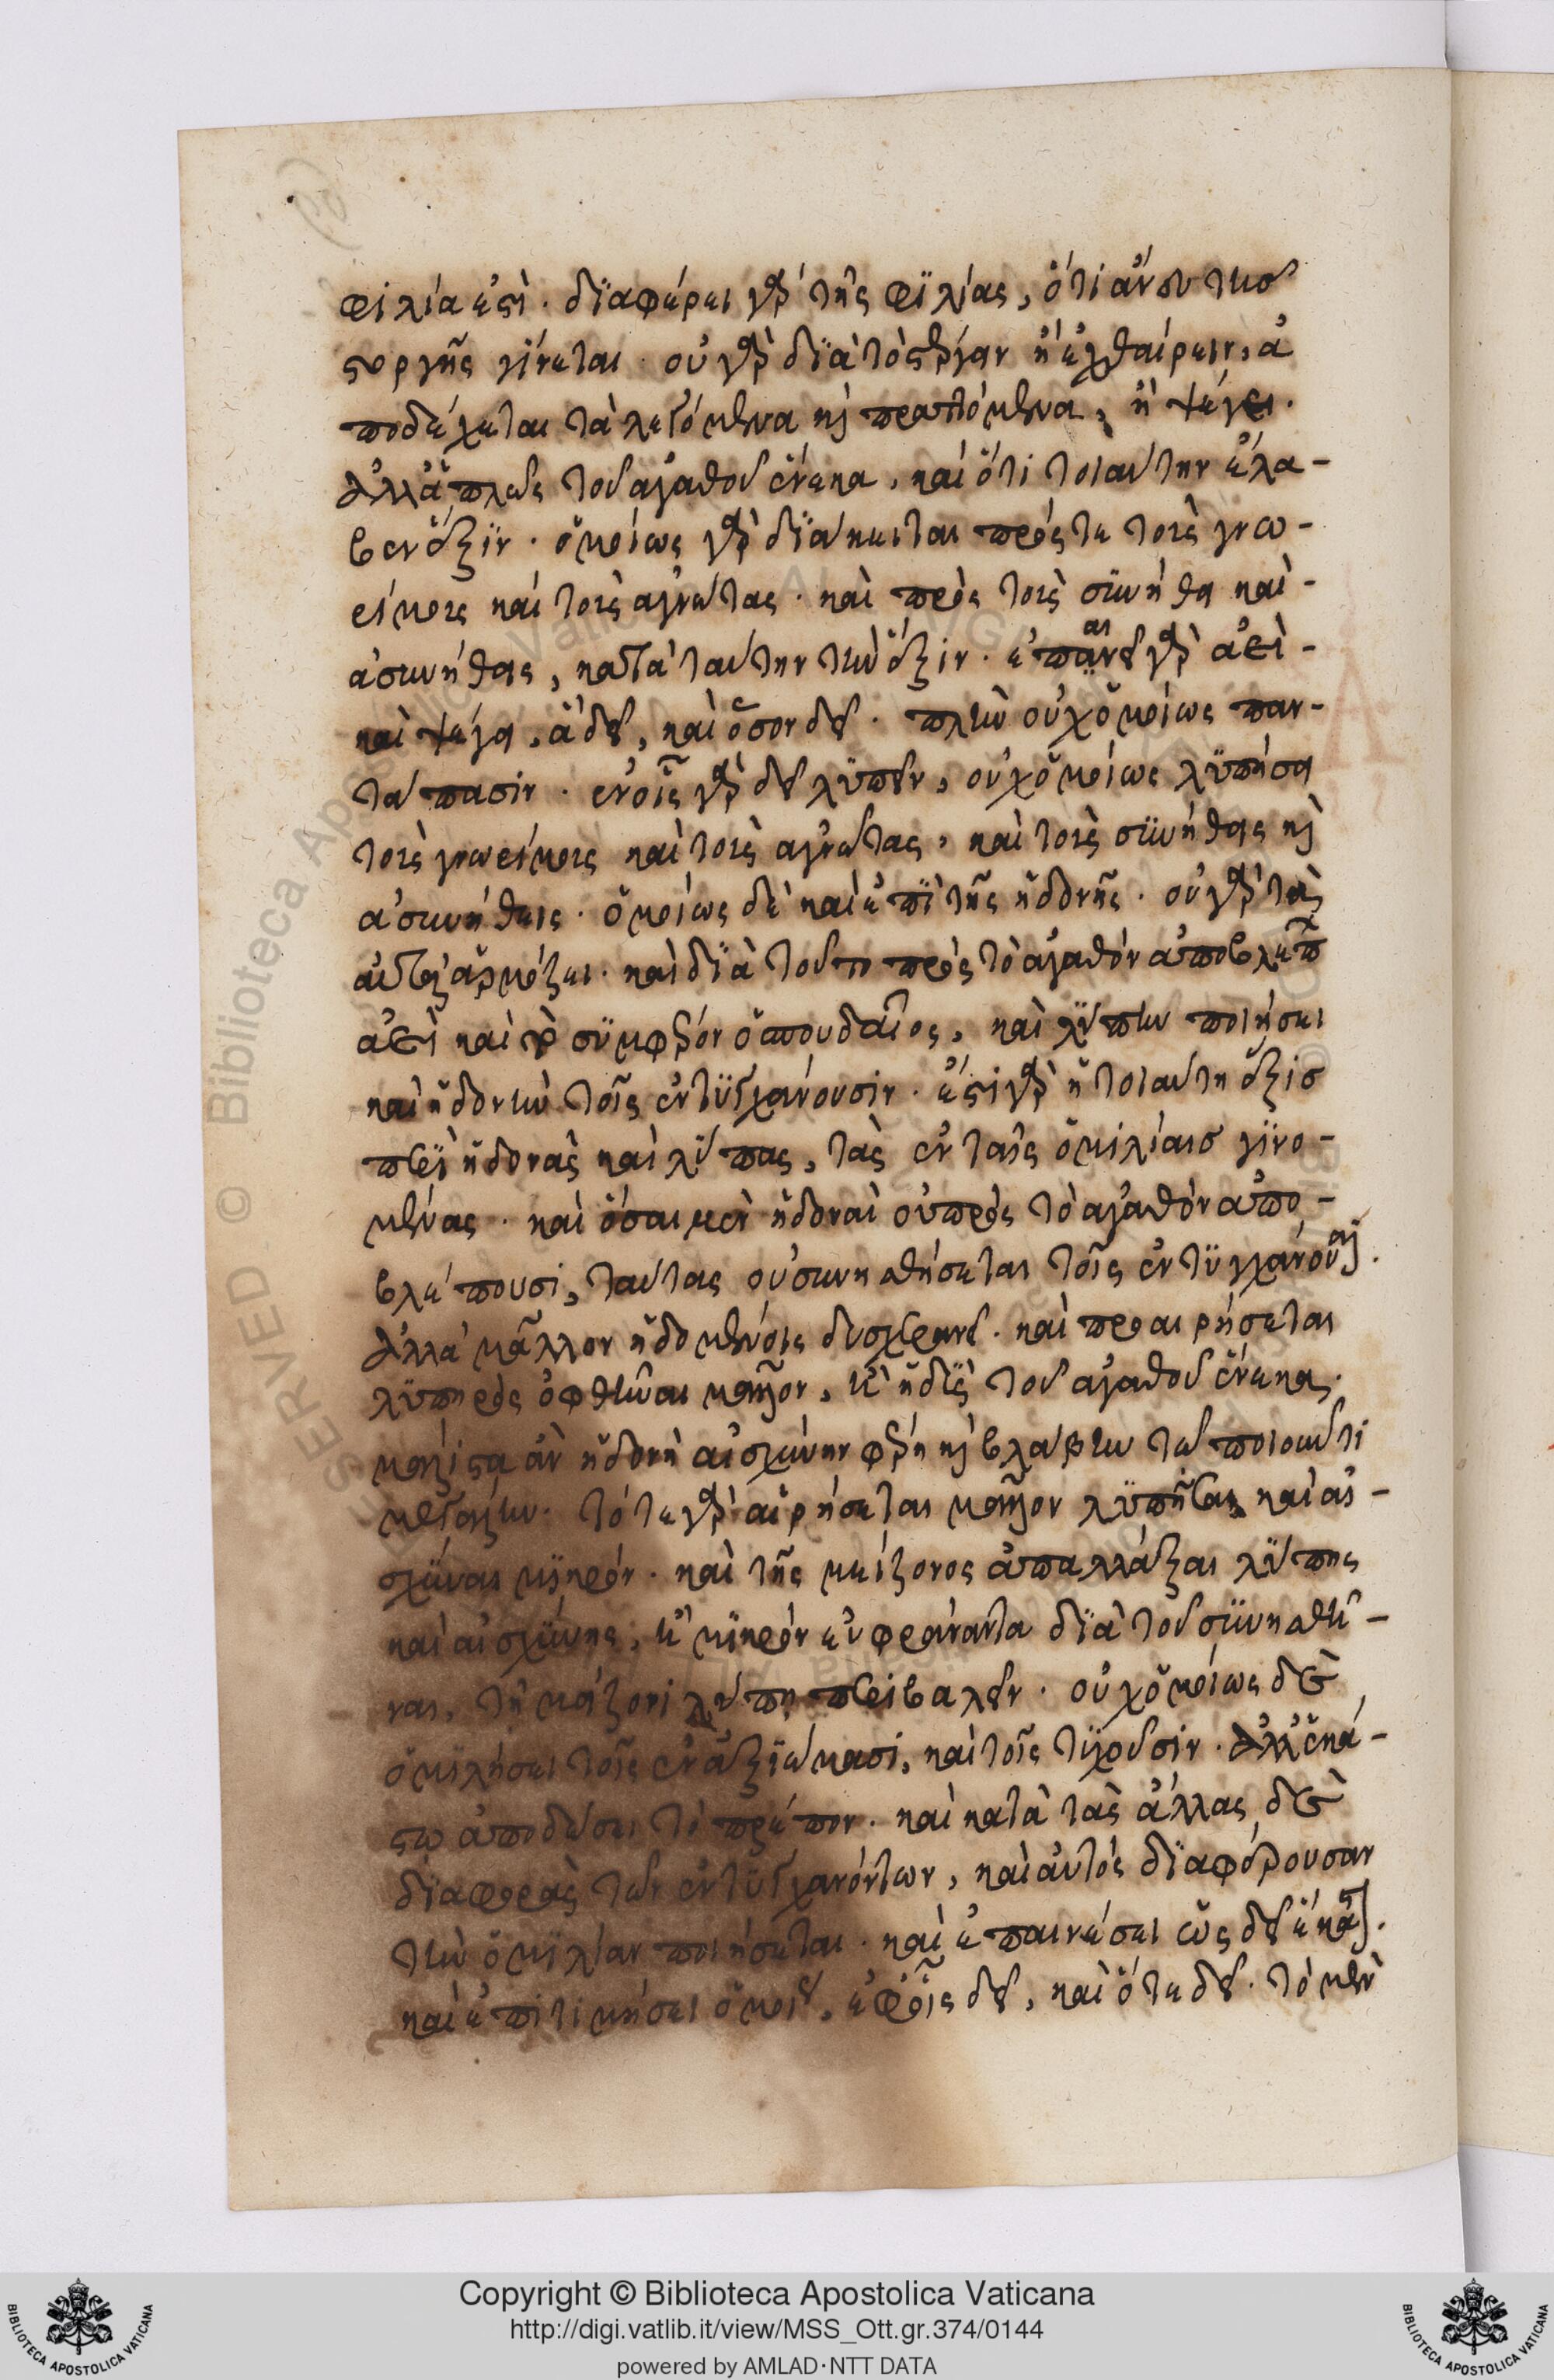 φιλία ἐστὶ. διαφέρει γὰρ τῆς φιλίας, ὅτι ἄνευ τινὸσ
στοργῆς γίνεται. οὐ γὰρ διὰ τὸ στέργειν ἢ ἐχθαίρειν, ἀ
ποδέχεται τὰ λεγόμενα καὶ πραττόμενα, ἢ ψέγει.
ἀλλ' ἁπλῶς τοῦ ἀγαθοῦ ἕνεκα, καὶ ὅτι τοιαύτην ἔλα-
βεν ἕξιν. ὁμοίως γὰρ διάκειται πρός τε τοὺς γνω-
ρίμους καὶ τοὺς ἀγνῶτας. καὶ πρὸς τοὺς συνήθεις καὶ-
ἀσυνήθεις, κατὰ ταύτην τὴν ἕξιν. ἐπαινεῖ γὰρ ἀεὶ-
καὶ ψέγει, ἃ δεῖ, καὶ ὅσον δεῖ. πλὴν οὐχ ὁμοίως παν-
τάπασιν. ἐν οἷς γὰρ δεῖ λυπεῖν, οὐχ ὁμοίως λυπήσει
τοὺς γνωρίμους καὶ τοὺς ἀγνῶτας, καὶ τοὺς συνήθεις καὶ
ἀσυνήθεις. ὁμοίως δὲ καὶ ἐπὶ τῆς ἡδονῆς. οὐ γὰρ τοῖς
αὐτοῖς ἁρμόζει. καὶ διὰ τοῦτο πρὸς τὸ ἀγαθὸν ἀποβλέπ
ἀεὶ καὶ τὸ συμφέρον ὁ σπουδαῖος, καὶ λύπην ποιήσει
καὶ ἡδονὴν τοῖς ἐντυγχάνουσιν. ἔστι γὰρ ἡ τοιαύτη ἕξισ
περὶ ἡδονὰς καὶ λύπας, τὰς ἐν ταῖς ὁμιλίαισ γινο-
μένας. καὶ ὅσαι μὲν ἡδοναὶ οὐ πρὸς τὸ ἀγαθὸν ἀπο-
βλέπουσι, ταύτας οὐ συνησθήσεται τοῖς ἐντυγχάνουσι.
ἀλλὰ μᾶλλον ἡδομένοις δυσχερανεῖ. καὶ προαιρήσεται
λυπηρὸς ὀφθῆναι μᾶλλον, ἢ ἡδὺς τοῦ ἀγαθοῦ ἕνεκα.
μάλιστα ἂν ἡδονὴ αἰσχύνην φέρῃ καὶ βλάβην τῷ ποιοῦντι
μεγάλην. τότε γὰρ αἱρήσεται μᾶλλον λυπῆσαι καὶ αἰ-
σχῦναι μικρόν. καὶ τῆς μείζονος ἀπαλλάξαι λύπης
καὶ αἰσχύνης, ἢ μικρὸν εὐφράναντα διὰ τοῦ συνησθῆ-
ναι, τῇ μείζονι λύπῃ περιβαλεῖν. οὐχ ὁμοίως δὲ
ὁμιλήσει τοῖς ἐν ἀξιώμασι, καὶ τοῖς τυχοῦσιν. ἀλλ' ἑκά-
στῳ ἀποδώσει τὸ πρέπον. καὶ κατὰ τὰς ἄλλας δὲ
διαφορὰς τῶν ἐντυγχανόντων, καὶ αὐτὸς διαφέρουσαν
τὴν ὁμιλίαν ποιήσεται. καὶ ἐπαινέσει ὡς δεῖ ἕκαστ.
καὶ ἐπιτιμήσει ὁμοί, ἐφ' οἷς δεῖ, καὶ ὅτε δεῖ. τὸ μὲν
Copyright © Biblioteca Apostolica Vaticana
http://digi.vatlib.it/view/MSS_Ott.gr.374/0144
powered by AMLAD·NTT DATA